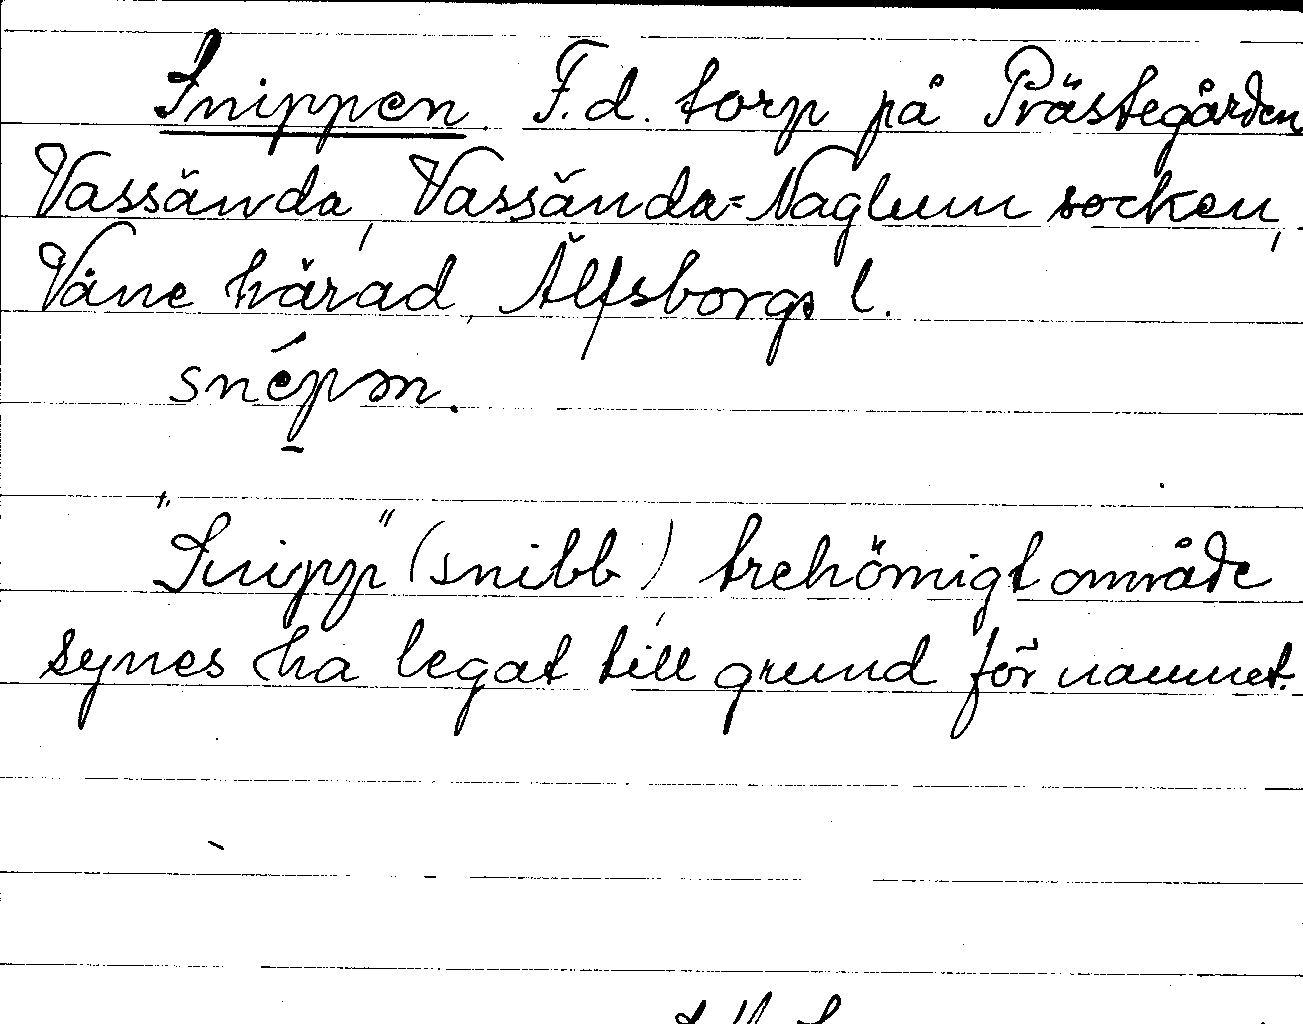 Snippen. F.d. torp på Prästegården
Vassända, Vassända-Naglum socken,
Väne härad, Älfsborgs l.
snépən.
"Snipp" (snibb) trehörnigt område
synes ha legat till grund för namnet.